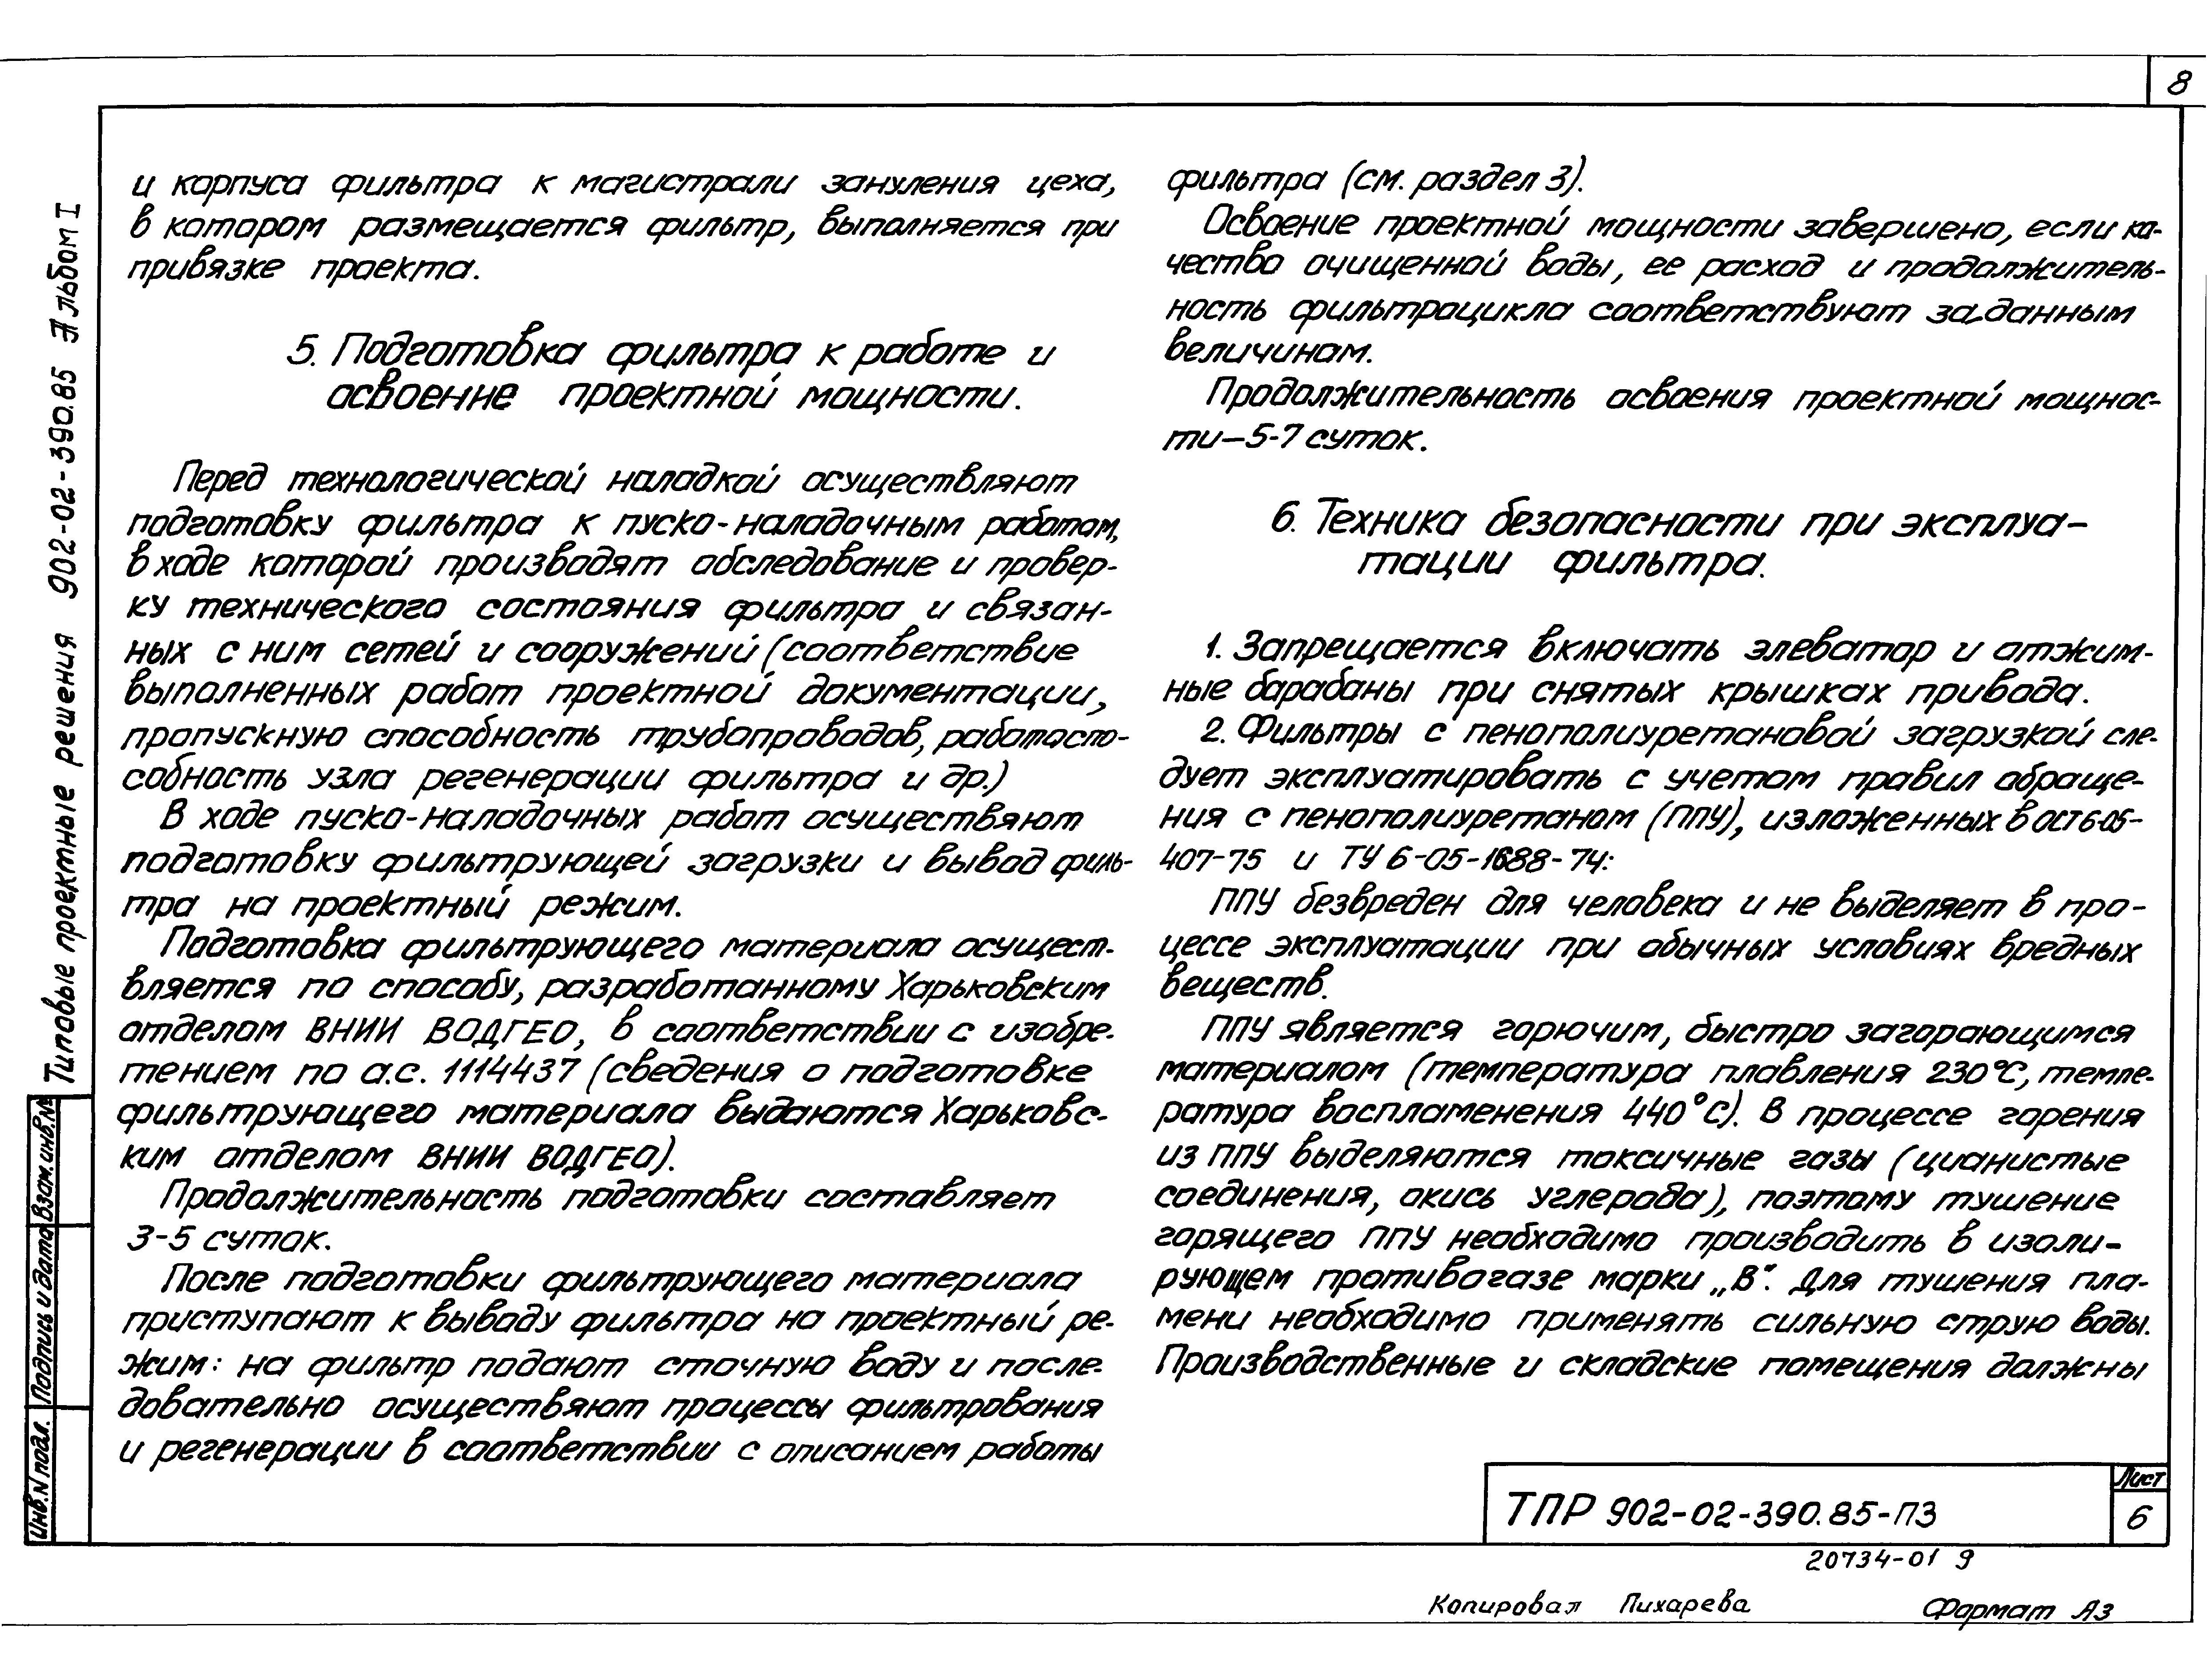 8
Типовые проектные решения 902-02-390.85 Альбом I
и корпуса фильтра к магистрали зануления цеха,
в котором размещается фильтр, выполняется при
привязке проекта.
5. Подготовка фильтра к работе и
освоение проектной мощности.
Перед технологической наладкой осуществляют
подготовку фильтра к пуско-наладочным работам,
в ходе которой производят обследование и провер-
ку технического состояния фильтра и связан-
ных с ним сетей и сооружений (соответствие
выполненных работ проектной документации,
пропускную способность трубопроводов, работоспо-
собность узла регенерации фильтра и др.)
В ходе пуско-наладочных работ осуществяют
подготовку фильтрующей загрузки и вывод филь-
тра на проектный режим.
Подготовка фильтрующего материала осущест-
вляется по способу, разработанному Харьковским
отделом ВНИИ ВОДГЕО, в соответствии с изобре-
тением по а.с. 1114437 (сведения о подготовке
фильтрующего материала выдаются Харьковс-
ким отделом ВНИИ ВОДГЕО).
Продолжительность подготовки составляет
3-5 суток.
После подготовки фильтрующего материала
приступают к выводу фильтра на проектный ре-
жим: на фильтр подают сточную воду и после-
довательно осуществяют процессы фильтрования
и регенерации в соответствии с описанием работы
фильтра (см. раздел 3).
Освоение проектной мощности завершено, если ка-
чество очищенной воды, ее расход и продолжитель-
ность фильтроцикла соответствуют заданным
величинам.
Продолжительность освоения проектной мощнос-
ти—5-7 суток.
6. Техника безопасности при эксплуа-
тации фильтра.
1. Запрещается включать элеватор и отжим-
ные барабаны при снятых крышках привода.
2. Фильтры с пенополиуретановой загрузкой сле-
дует эксплуатировать с учетом правил обраще-
ния с пенополиуретаном (ППУ), изложенных в ОСТ 6-05-
407-75 и ТУ 6-05-1688-74:
ППУ безвреден для человека и не выделяет в про-
цессе эксплуатации при обычных условиях вредных
веществ.
ППУ является горючим, быстро загорающимся
материалом (температура плавления 230°С, темпе-
ратура воспламенения 440°С). В процессе горения
из ППУ выделяются токсичные газы (цианистые
соединения, окись углерода), поэтому тушение
горящего ППУ необходимо производить в изоли-
рующем противогазе марки „В". Для тушения пла-
мени необходимо применять сильную струю воды.
Производственные и складские помещения должны
Инв. N подл. Подпись и дата Взам. инв. №
ТПР 902-02-390.85-ПЗ
Лист
6
20734-01 9
Копировал Пихарева Формат А3